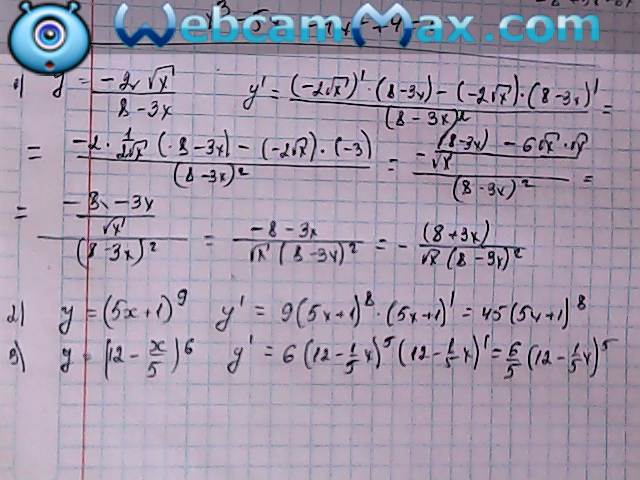 WebcamMax.com
1) y = \frac{-2\sqrt{x}}{8-3x} y' = \frac{(-2\sqrt{x})' \cdot (8-3x) - (-2\sqrt{x}) \cdot (8-3x)'}{(8-3x)^2} =
= \frac{-2 \cdot \frac{1}{2\sqrt{x}} (8-3x) - (-2\sqrt{x}) \cdot (-3)}{(8-3x)^2} = \frac{-\frac{(8-3x) - 6\sqrt{x} \cdot \sqrt{x}}{\sqrt{x}}}{(8-3x)^2} =
= \frac{\frac{-8-3x}{\sqrt{x}}}{(8-3x)^2} = \frac{-8-3x}{\sqrt{x}(8-3x)^2} = -\frac{(8+3x)}{\sqrt{x}(8-3x)^2}
2) y = (5x+1)^9 y' = 9(5x+1)^8 \cdot (5x+1)' = 45(5x+1)^8
3) y = (12-\frac{x}{5})^6 y' = 6(12-\frac{1}{5}x)^5 (12-\frac{1}{5}x)' = \frac{6}{5}(12-\frac{1}{5}x)^5